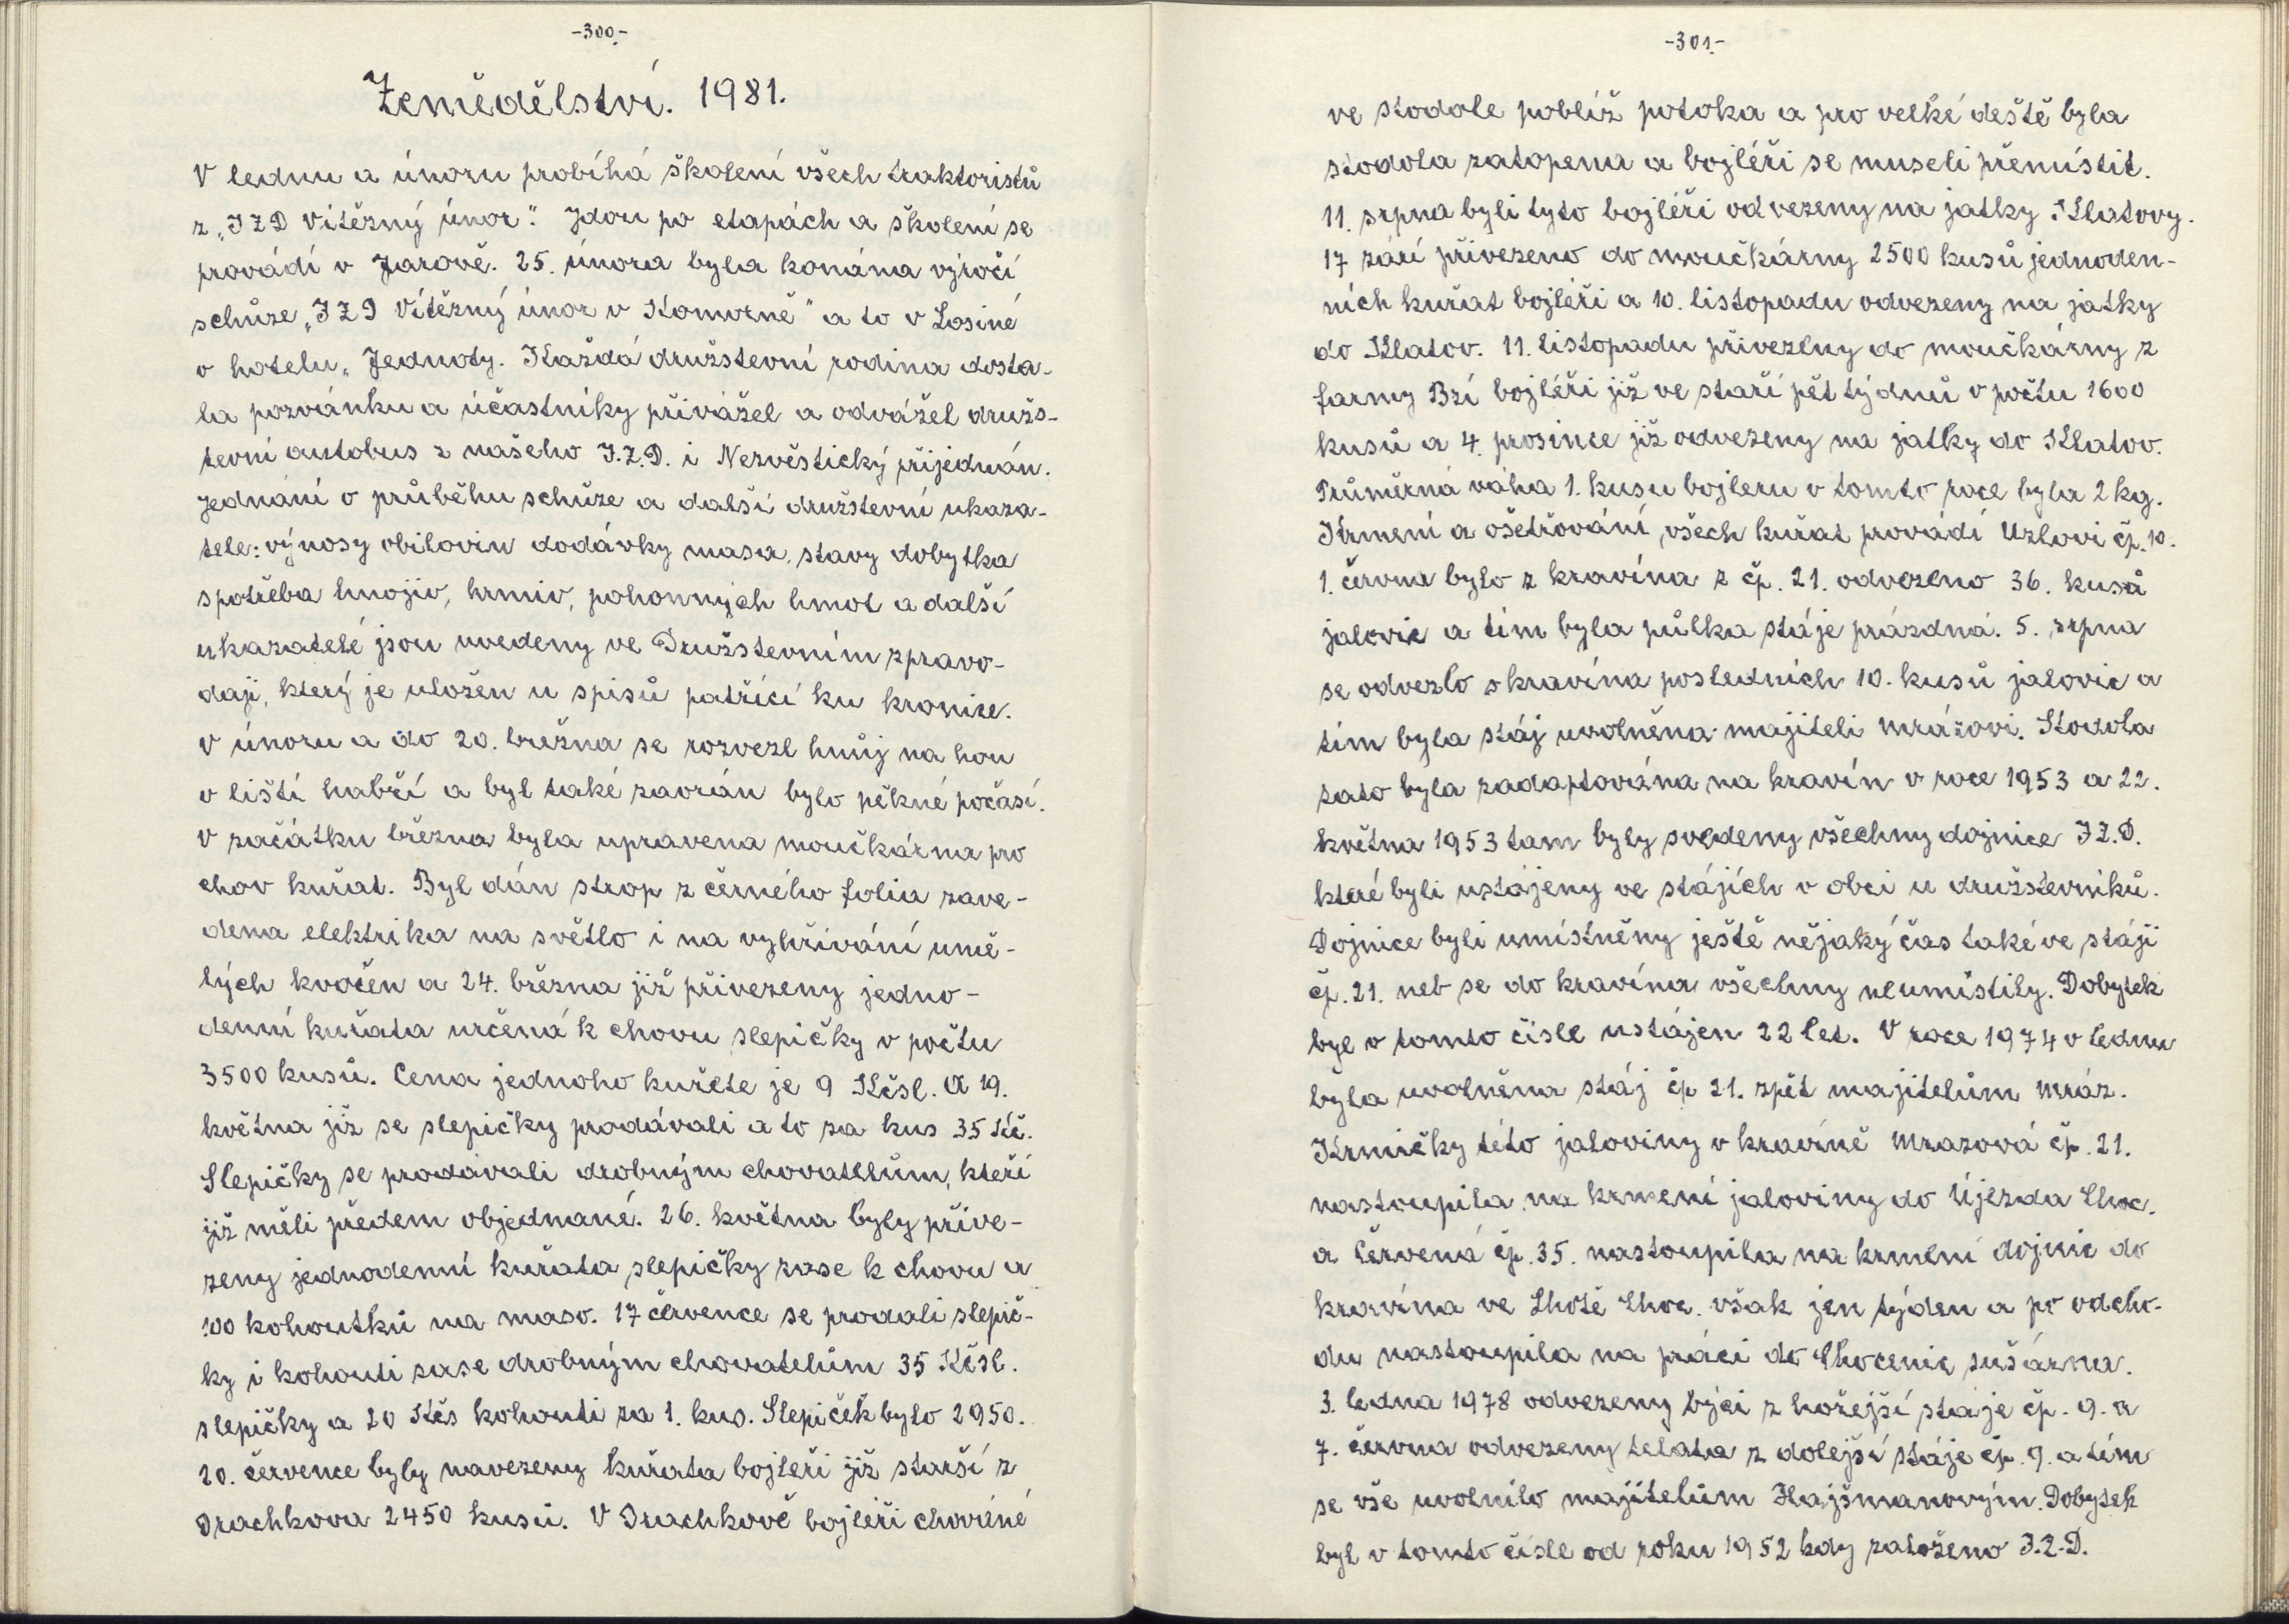 -300.-
Zemědělství. 1981.
V lednu a únoru probíhá školení všech traktoristů
z „JZD Vítězný únor“. Jdou po etapách a školení se
provádí v Žárově. 25. února byla konána výročí
schůze „JZD Vítězný únor v Komorně“ a to v Losiné
v hotelu „Jednoty. Každá družstevní rodina dosta-
la pozvánku a účastníky přivážel a odvážel družs-
tevní autobus z našeho J.Z.D. i Nezvěstický přijednán.
Jednání o průběhu schůze a další družstevní ukaza-
tele: výnosy obilovin dodávky masa, stavy dobytka
spotřeba hnojiv, krmiv, pohonných hmot a další
ukazatelé jsou uvedeny ve Družstevním zpravo-
daji, který je uložen u spisů patřící ku kronice.
V únoru a do 20. března se rozvezl hnůj na hon
v liští habří a byl také zaorán bylo pěkné počasí.
V začátku března byla upravena moučkárna pro
chov kuřat. Byl dán strop z černého folia zave-
dena elektrika na světlo i na vyhřívání umě-
lých kvočen a 24. března již přivezeny jedno-
denní kuřata určená k chovu slepičky v počtu
3500 kusů. Cena jednoho kuřete je 9 Kčsl. A 19.
května již se slepičky prodávali a to za kus 35 Kč.
Slepičky se prodávali drobným chovatelům, kteří
již měli předem objednané. 26. května byly přive-
zeny jednodenní kuřata slepičky zase k chovu a
100 kohoutků na maso. 17 července se prodali slepič-
ky i kohouti zase drobným chovatelům 35 Kčsl.
slepičky a 20 Kčs kohouti za 1. kus. Slepiček bylo 2950.
20. července byly navezeny kuřata bojleři již starší z
Drachkova 2450 kusů. V Drachkově bojléři chované
-301.-
ve stodole poblíž potoka a pro velké deště byla
stodola zatopena a bojléři se museli přemístit.
11. srpna byli tyto bojléři odvezeny na jatky Klatovy.
17 září přivezeno do moučkárny 2500 kusů jednoden-
ních kuřat bojléři a 10. listopadu odvezeny na jatky
do Klatov. 11. listopadu přivezeny do moučkárny z
farmy Bzí bojléři již ve staří pět týdnů v počtu 1600
kusů a 4. prosince již odvezeny na jatky do Klatov.
Průměrná váha 1. kusu bojleru v tomto roce byla 2 kg.
Krmení a ošetřování všech kuřat provádí Uzlovi čp. 10.
1. června bylo z kravína z čp. 21. odvezeno 36. kusů
jalovic a tím byla půlka stáje prázdná. 5. srpna
se odvezlo z kravína posledních 10. kusů jalovic a
tím byla stáj uvolněna majiteli Mrázovi. Stodola
tato byla zadaptována na kravín v roce 1953 a 22.
května 1953 tam byly svedeny všechny dojnice JZ.D.
které byli ustájeny ve stájích v obci u družstevníků.
Dojnice byli umístněny ještě nějaký čas také ve stáji
čp. 21. neb se do kravína všechny neumístily. Dobytek
byl v tomto čísle ustájen 22 let. V roce 1974 v lednu
byla uvolněna stáj čp 21. zpět majitelům Mráz.
Krmičky této jaloviny v kravíně Mrazová čp. 21.
nastoupila na krmení jaloviny do Újezda Choc.
a Červená čp. 35. nastoupila na krmení dojnic do
kravína ve Lhotě Choc. však jen týden a po odcho-
du nastoupila na práci do Chocenic sušárna.
3. ledna 1978 odvezeny býci z hořejší stáje čp. 9. a
7. června odvezeny telata z dolejší stáje čp. 9. a tím
se vše uvolnilo majitelům Hajšmanovým. Dobytek
byl v tomto čísle od roku 1952 kdy založeno J.Z.D.